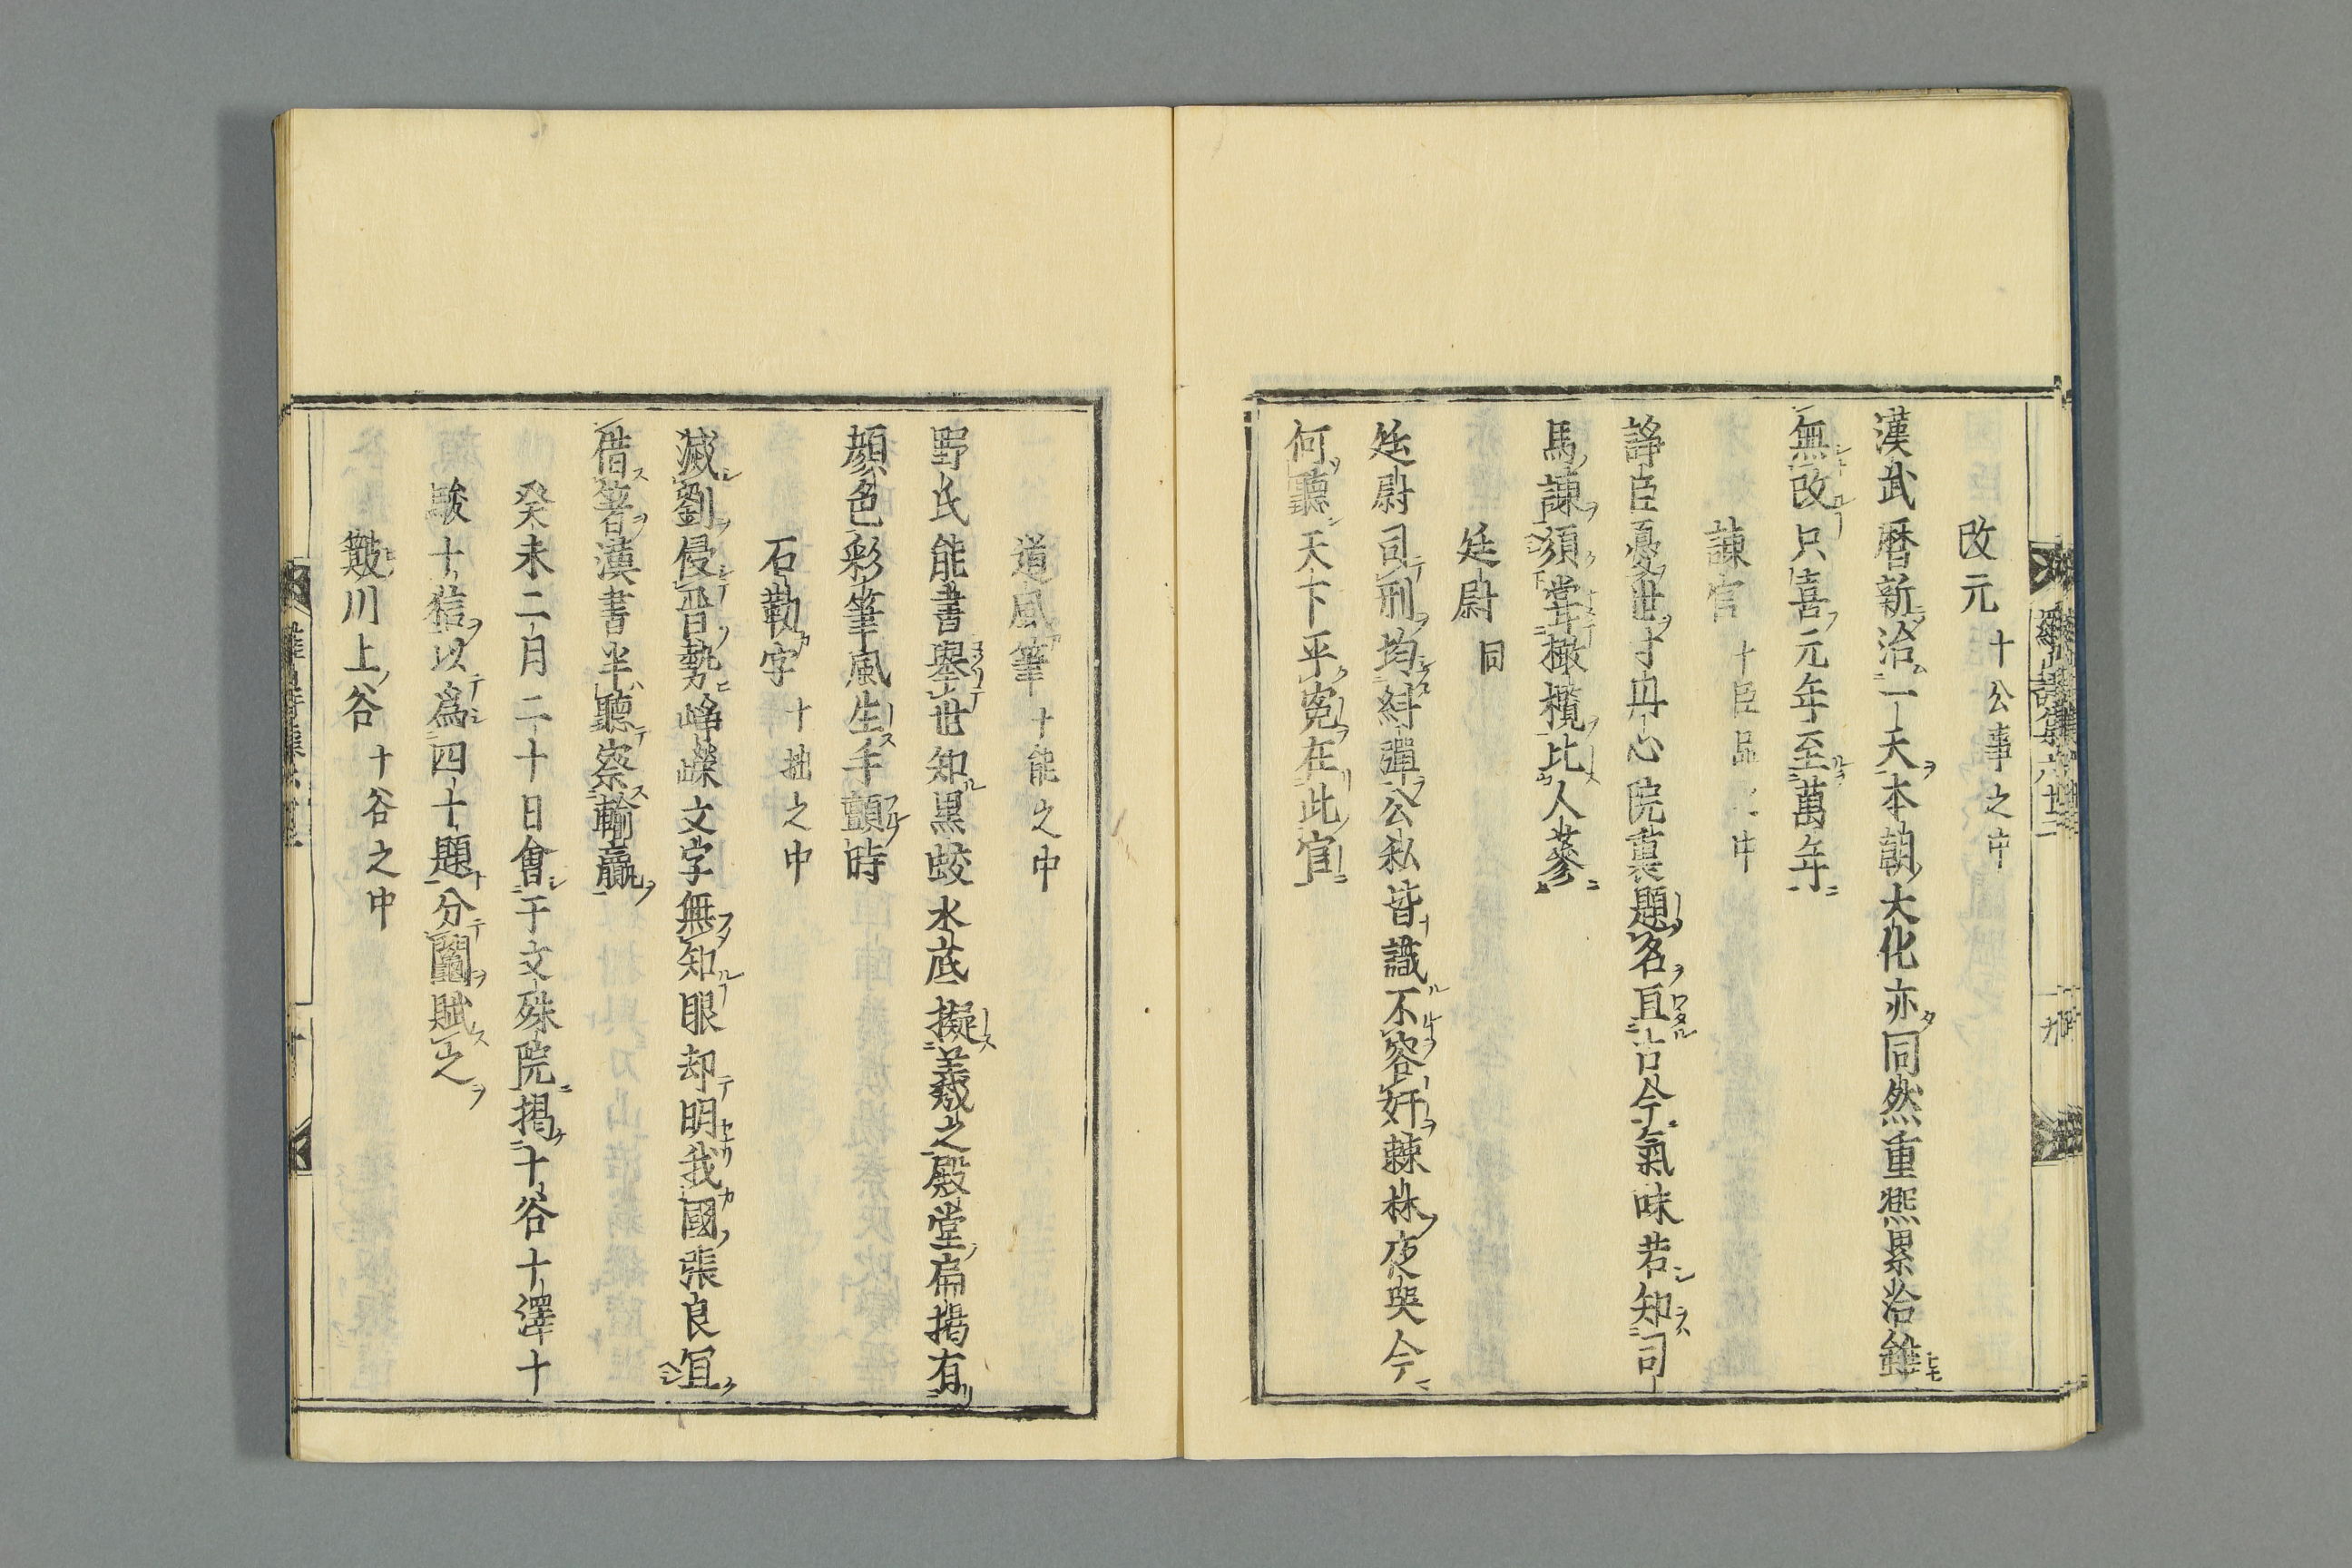 改元 十公事之中
漢武曆新治一天本朝大化亦同然重熙累洽雖
無改只喜元年至萬年
諫官 十臣品之中
諍臣憂世寸丹心院裏題名亘古今氣味若知司
馬諫須嘗橄欖比人蔘
廷尉 同
廷尉司刑均糾彈公私皆識不容奸棘林夜哭今
何聽天下平寃在此官
道風筆 十能之中
野氏能書擧世知黑蛟水底擬羲之殿堂扁揭有
顔色彩筆風生手顫時
石勒字 十拙之中
滅劉侵晉勢崢嶸文字無知眼却明我國張良冝
借箸漢書半聽察輸贏
癸未二月二十日會于文殊院揭十谷十澤十
十信以爲四十題分鬮賦之
川上谷 十谷之中